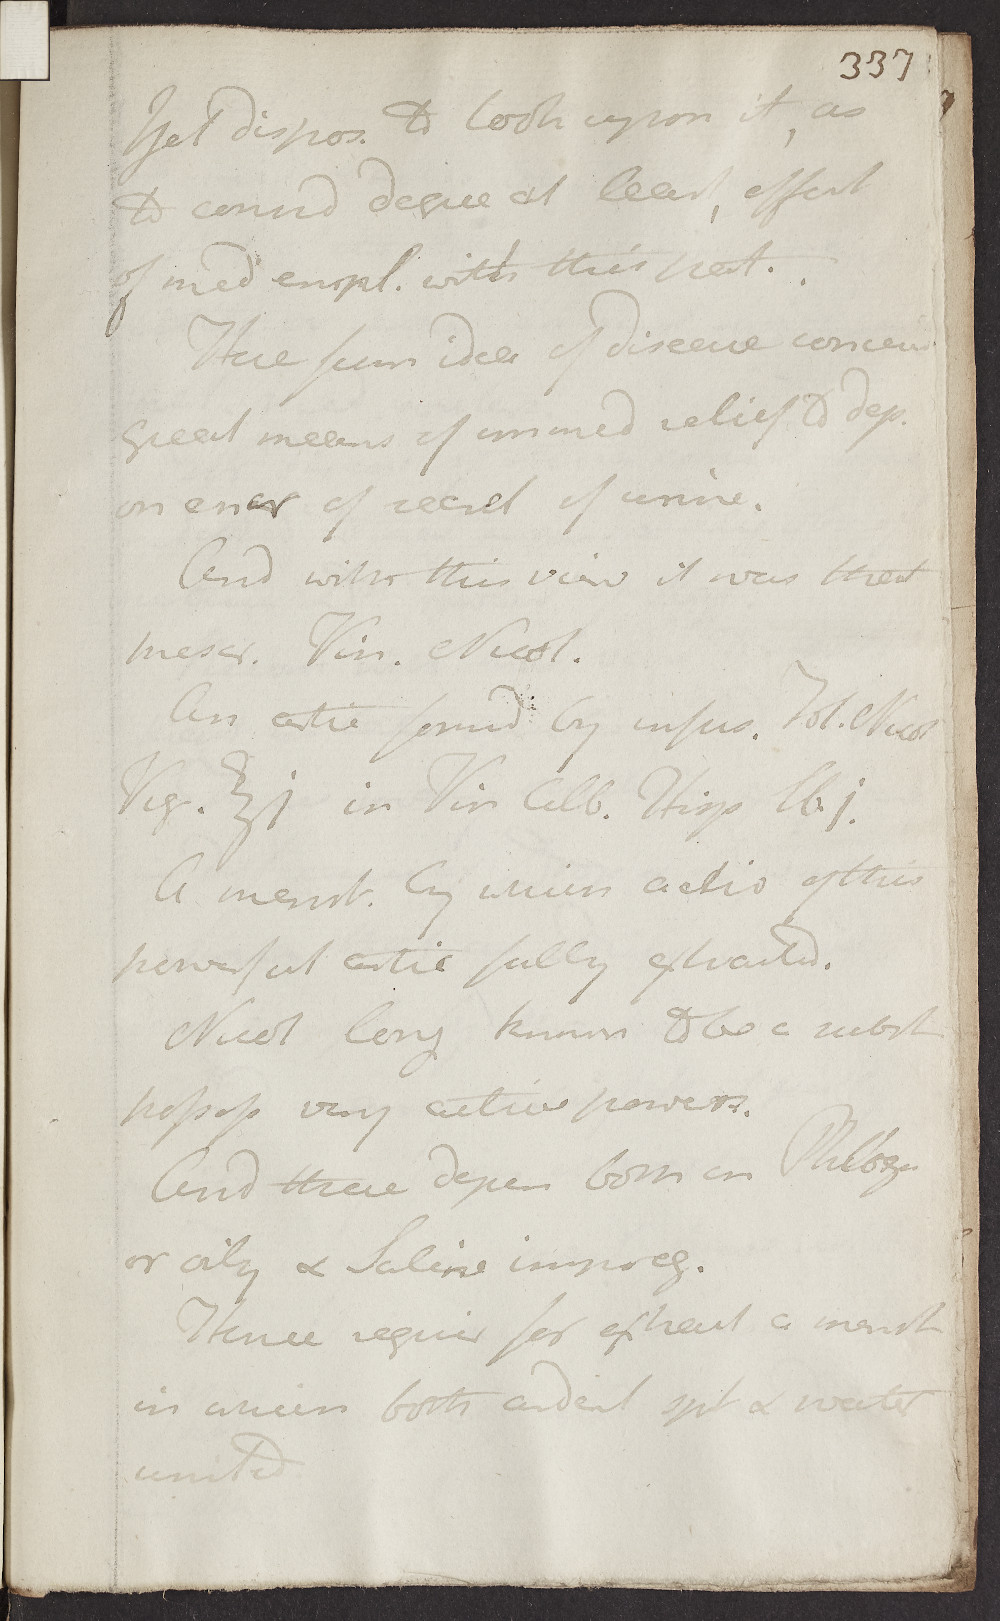 337
Yet dispos. to look upon it, as
to consid degree at least, effect
of med empl. with this peat.
Here from idea of disease conceiv
great means of immed relief to dep.
on encr of secret of urine.
And with this view it was that
prescr. Vin. Nicot.
An artic formd by infus. Fol. Nicot
Vir. ℥j in Vin Alb. Hisp lbj.
A menst. by which activ of this
powerful artic fully extracted.
Nicot long known to be a subst
possess very active powers.
And these depen both on Phlog.
or oily & Saline impreg.
Hence requir for extract a menst
in which both ardent spt & water
united